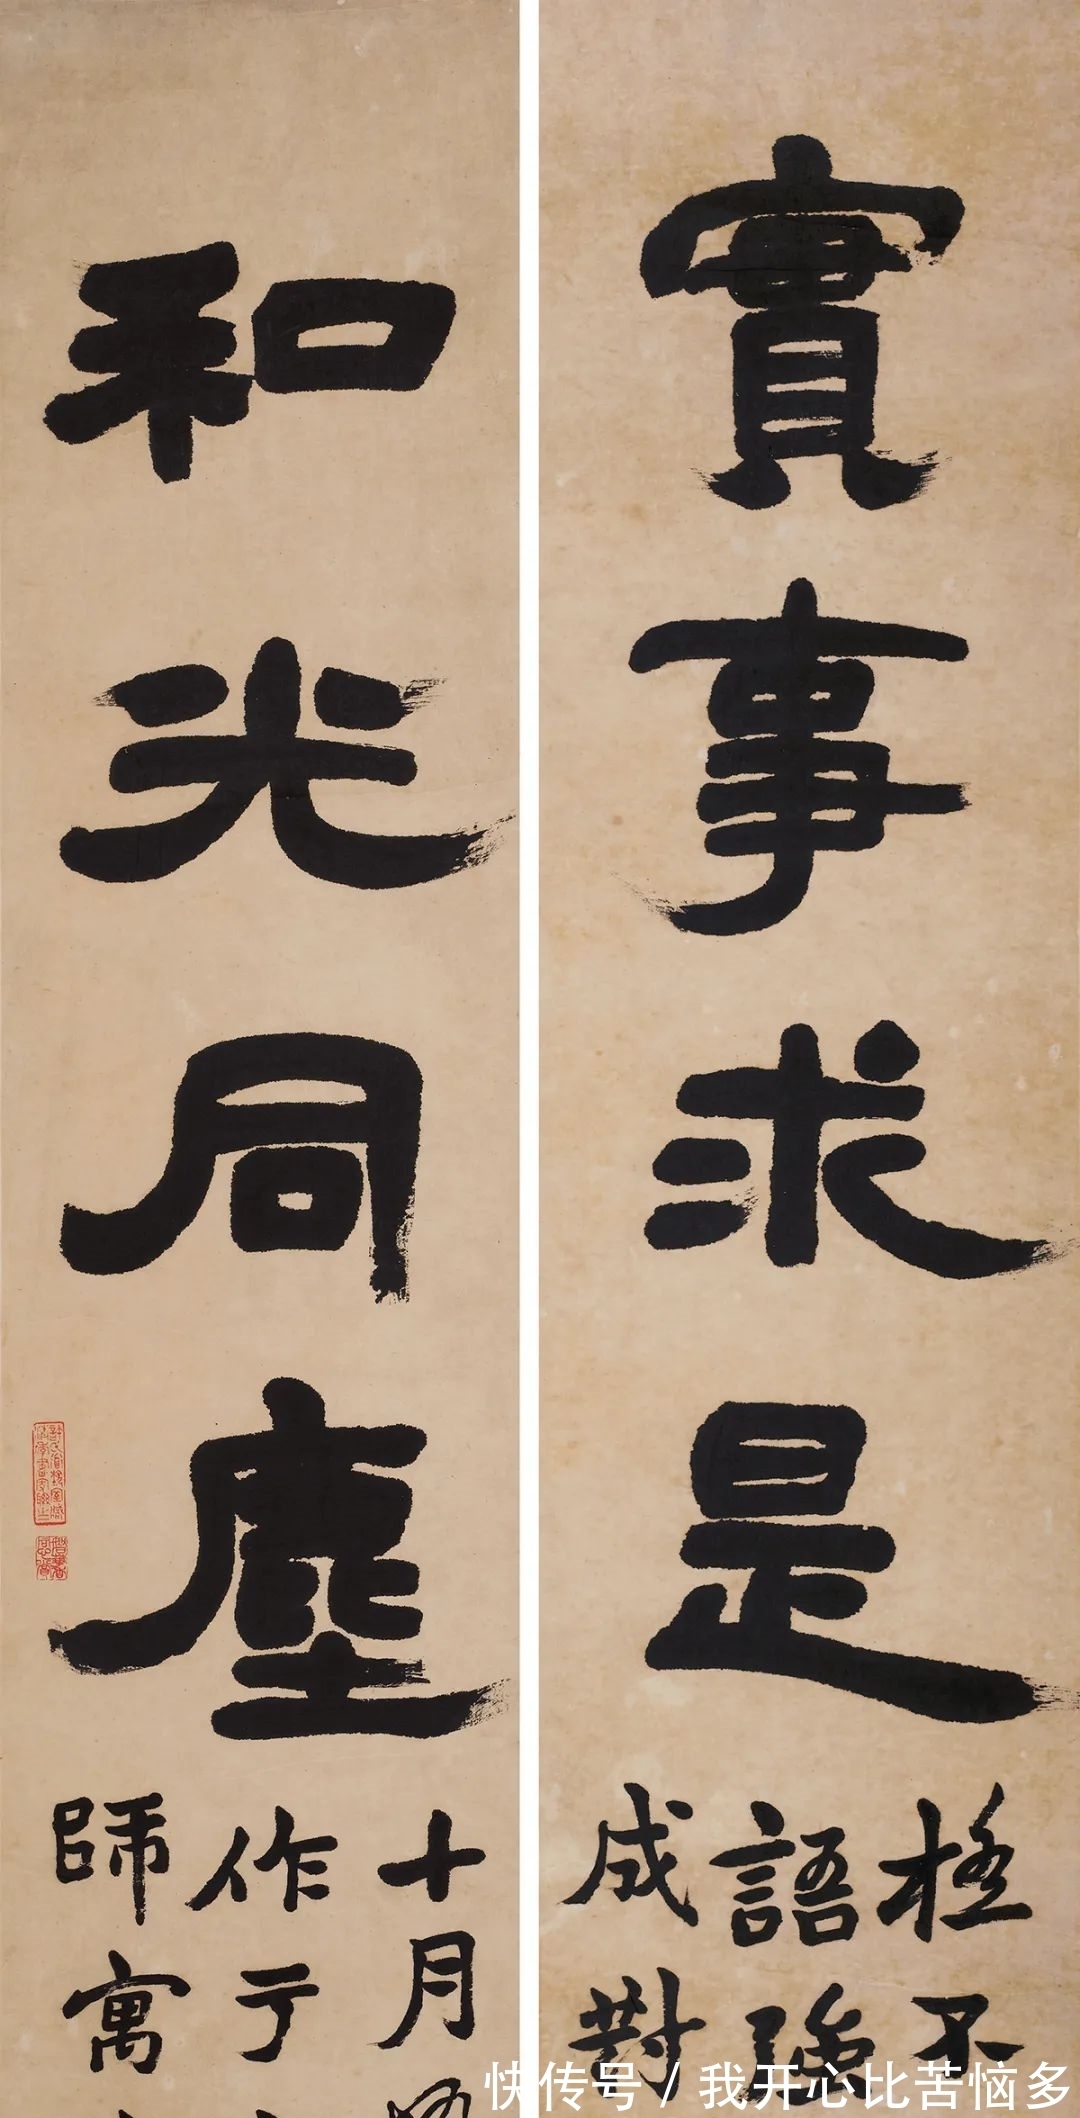 實事求是
極不
語強
成對
和光同塵
十月
作于
師寓
快传号 / 我开心比苦恼多